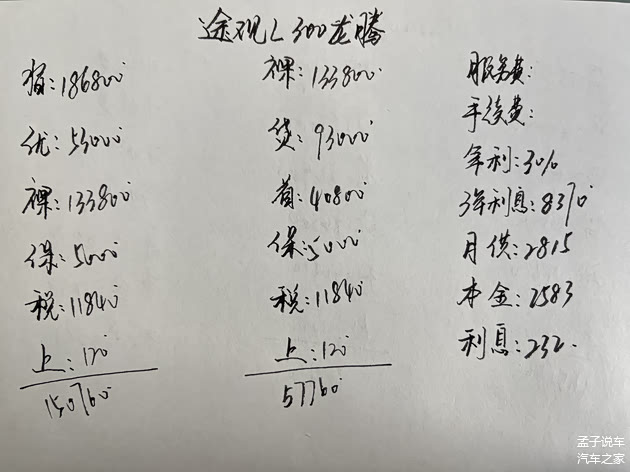 途观L300龙腾
指:186800
优:53000
裸:133800
保:5000
税:11840
上:120
150760
裸:133800
贷:93000
首:40800
保:5000
税:11840
上:120
57760
服务费:
手续费:
年利:3%
3年利息:8370
月供:2815
本金:2583
利息:232.
孟子说车
汽车之家